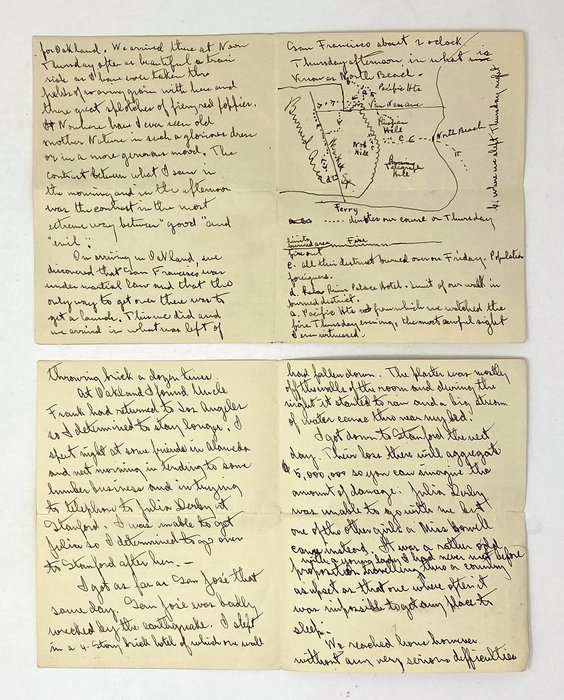 for Oakland. We arrived there at Noon
Thursday after as beautiful a train
ride as I have ever taken thro
fields of waving grain with here and
there great splotches of fiery red poppies.
Nowhere have I ever seen old
mother Nature in such a glorious dress
or in a more generous mood. The
contrast between what I saw in
the morning and in the afternoon
was the contrast in the most
extreme way between "good" and
"evil".
On arriving in Oakland, we
discovered that San Francisco was
under martial law and that the
only way to get over there was to
get a launch. This we did and
we arrived in what was left of
San Francisco about 2 o'clock
Thursday afternoon, in what is
known as North Beach.
Pacific Hts
Van Ness Ave
Burned Area
Market St
Nob Hill
Russian Hill
e
Telegraph Hill
North Beach
Ferry
b. where we slept Thursday night
..... denotes our course on Thursday
limits
burned area Fire
fire out
e. all this district burned over on Friday. Population
foreigners.
d. Ruins Palace Hotel. Limit of our walk in
burned district.
a. Pacific Hts from which we watched the
fire Thursday evening, the most awful sight
I ever witnessed.
throwing brick a dozen times.
At Oakland I found Uncle
Frank had returned to Los Angeles
so I determined to stay longer. I
spent night at some friends in Alameda
and next morning in tending to some
lumber business and in trying
to telephone to Julia Derby at
Stanford. I was unable to get
Julia so I determined to go over
to Stanford after her. —
I got as far as San José that
same day. San José was badly
wrecked by the earthquake. I slept
in a 4-story brick hotel of which one wall
had fallen down. The plaster was mostly
off the walls of the room and during the
night it started to rain and a big stream
of water came thro near my bed.
I got down to Stanford the next
day. Their loss there will aggregate
$5,000,000 so you can imagine the
amount of damage. Julia Derby
was unable to go with me but
one of the other girls a Miss Howell
came instead. It was a rather odd
with a young lady I had never met before
proposition travelling thro a country
as upset as that one where often it
was impossible to get any place to
sleep.
We reached home however
without any very serious difficulties